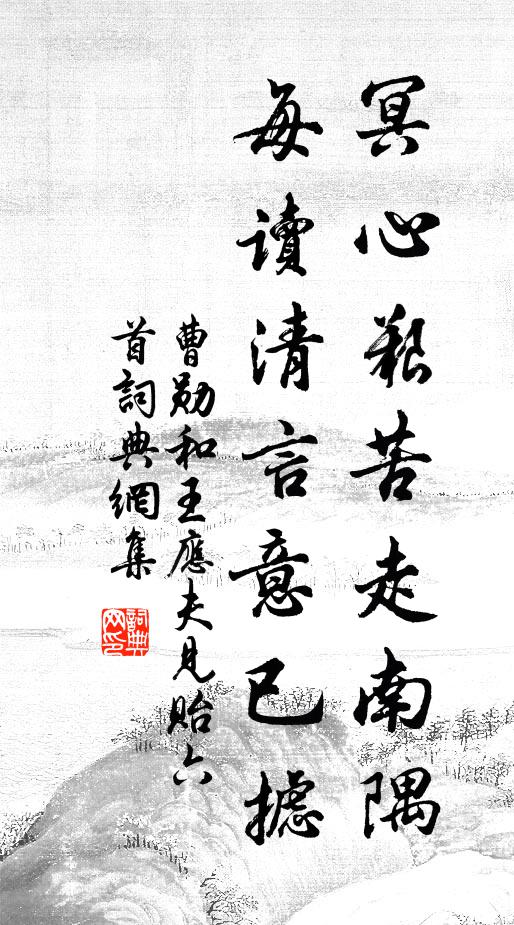 冥心艱苦走南隅
每讀清言意已攄
曹勛和王應夫見貽六
首詞典網集
詞典網印